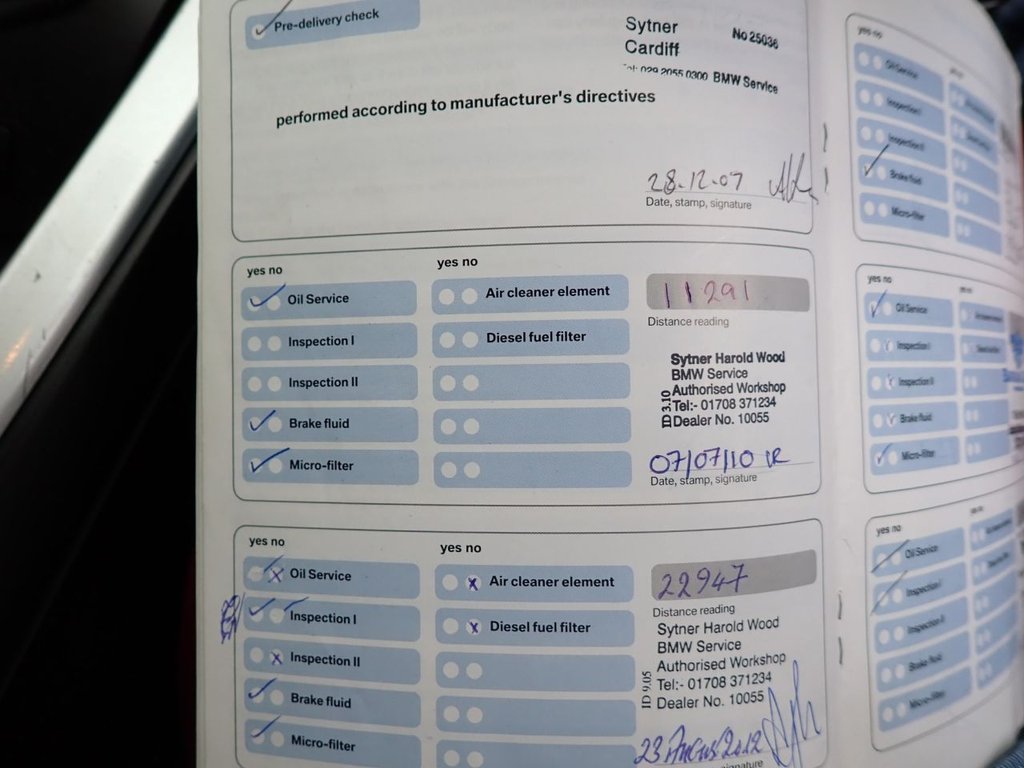 Pre-delivery check
Sytner No 25036
Cardiff
Tel: 029 2055 0300 BMW Service
performed according to manufacturer's directives
28.12.07
Date, stamp, signature
yes no yes no
Oil Service Air cleaner element 11291
Inspection I Diesel fuel filter Distance reading
Inspection II
Brake fluid
Micro-filter
Sytner Harold Wood
BMW Service
Authorised Workshop
Tel:- 01708 371234
Dealer No. 10055
ID 3.10
07/07/10
Date, stamp, signature
yes no yes no
Oil Service Air cleaner element 22947
Inspection I Diesel fuel filter Distance reading
Inspection II
Brake fluid
Micro-filter
Sytner Harold Wood
BMW Service
Authorised Workshop
Tel:- 01708 371234
Dealer No. 10055
ID 9.05
23 August 2012
signature
yes no
Oil Service
Inspection I
Inspection II
Brake fluid
Micro-filter
yes no
Oil Service
Inspection I
Inspection II
Brake fluid
Micro-filter
yes no
Oil Service
Inspection I
Inspection II
Brake fluid
Micro-filter